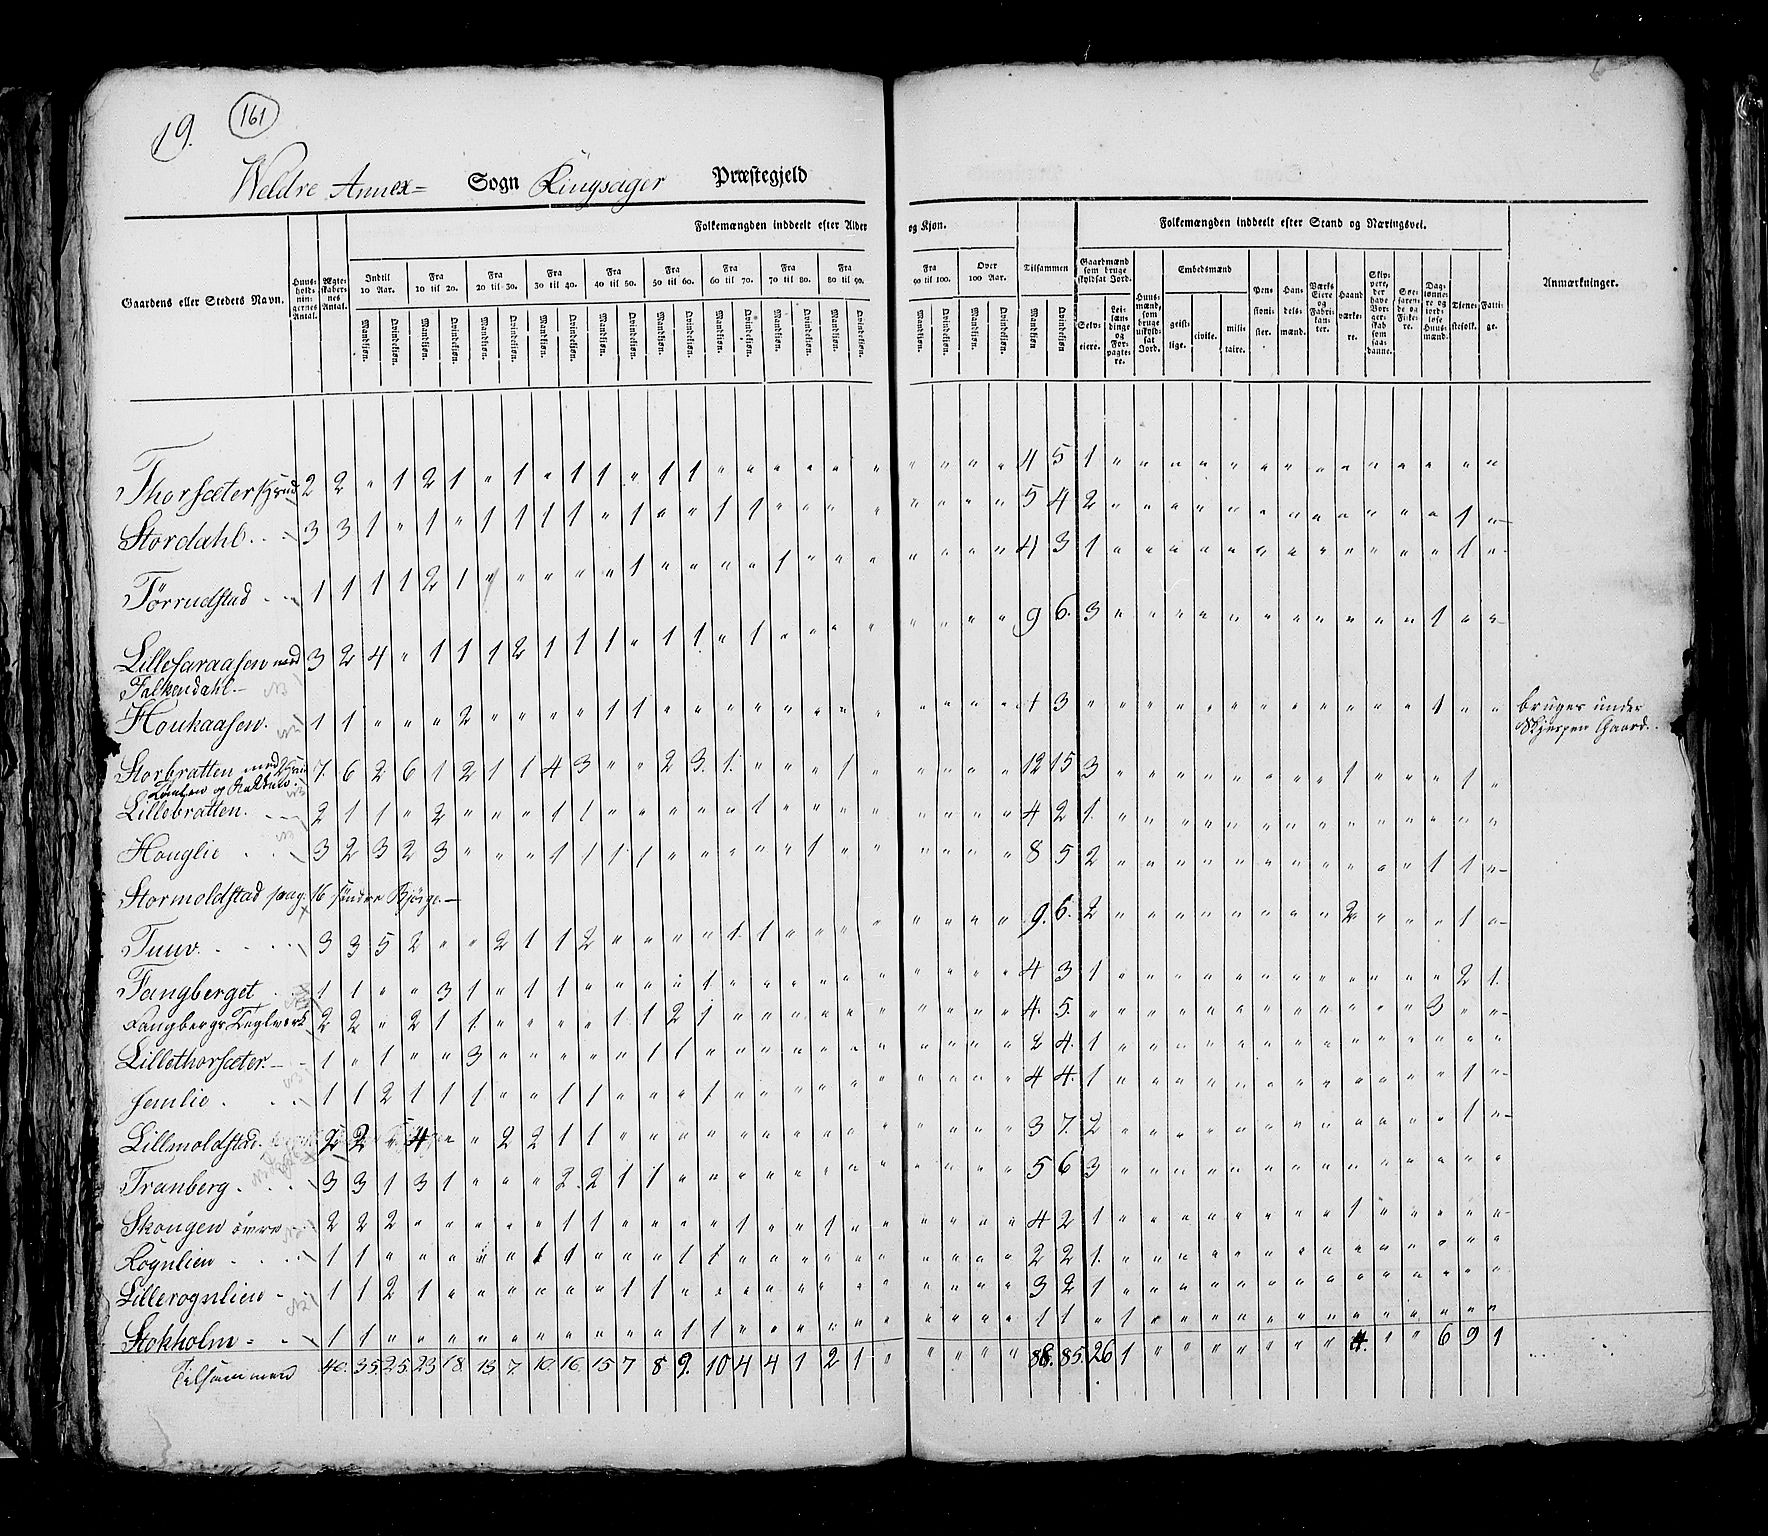 19. 161
Weldre Annex= Sogn Ringsager Præstegjeld
Folkemængden inddeelt efter Alder og Kjøn. Tilsammen Folkemængden inddeelt efter Stand og Næringsvei.
Gaardens eller Stedets Navn. Huusholdningernes Antal. Ægteskabernes Antal. Indtil 10 Aar. Fra 10 til 20. Fra 20 til 30. Fra 30 til 40. Fra 40 til 50. Fra 50 til 60. Fra 60 til 70. Fra 70 til 80. Fra 80 til 90. Fra 90 til 100. Over 100 Aar. Gaardmænd som bruge skyldsat Jord. Huusmænd, som bruge uskyldsat Jord. Embedsmænd Pensionister. Handelsmænd. Værks Eiere og Fabrikanter. Haandværkere. Skippere, der have Borgerskab som saadanne. Søefarende og Fiskere. Daglønnere og jordløse Huusmænd. Tjenestefolk. Fattige. Anmærkninger.
Mandkjøn. Qvindekjøn. Mandkjøn. Qvindekjøn. Mandkjøn. Qvindekjøn. Mandkjøn. Qvindekjøn. Mandkjøn. Qvindekjøn. Mandkjøn. Qvindekjøn. Mandkjøn. Qvindekjøn. Mandkjøn. Qvindekjøn. Mandkjøn. Qvindekjøn. Mandkjøn. Qvindekjøn. Mandkjøn. Qvindekjøn. Mandkjøn Qvindekjøn Selveiere. Leilændinge og Forpagtere. geistlige. civile. militaire.
Thorsæter 2 2 " 1 2 1 " 1 " 1 1 " 1 1 " " " " " " " " " " 4 5 1 " " " " " " " " " " " " " "
Stordahl 3 3 1 " 1 " 1 1 1 1 " 1 " " 1 1 " " " " " " " " 5 4 2 " " " " " " " " " " " " 1 "
Törrudstad 1 1 1 1 2 1 " " " " " 1 " " " " 1 " " " " " " " 4 3 1 " " " " " " " " " " " " 1 "
Lillesaraasen med 3 2 4 " 1 1 1 2 1 1 1 " 1 1 " 1 " " " " " " " " 9 6. 3 " " " " " " " " " " " 1 " "
Falkendahl
Houkaasen. 1 1 " " " 2 " " " " 1 1 " " " " " " " " " " " " 1 3 " " " " " " " " " " " " 1 " " bruges under
Gaard.
Storbratten med 7. 6 2 6 1 2 1 1 4 3 " " 2 3. 1. " " " 1 " " " " " 12 15 3 " " " " " " " " 1 " " " 1 "
Lillebratten. 2 1 1 " 2 " " " 1 1 " " " " " 1 " " " " " " " " 4 2 1. " " " " " " " " " " " " " "
Houglie 3 2 3 2 3 " " " 1 1 1 1 " " " " " 1 " " " " " " 8 5 2 " " " " " " " " " " " 1 1 "
Stormoldstad pag. 16 söndre Bjørge
Tuuv. 3 3 5 2 " " 2 1 1 2 " " " " 1. 1 " " " " " " " " 9. 6. 2 " " " " " " " " 2 " " " 1 "
Fangberget 1 1 " " 3 1 " 1 1 " " " " 1 " " " " " " " " " " 4 3 1 " " " " " " " " " " " " 2 1.
Fangbergs Teglværk 2 2 " 2 1 1. " " " " 1 1 2 1 " " " " " " " " " " 4. 5. " " " " " " " " " " " " 3 " "
Lillethorsæter. 1 " 1 " " 3 " " " " " 1 1 " " " " " " " " " " " 2 4. 1 " " " " " " " " " " " " " "
Semlie 1 1 2 1 1 1 " " 1 1 " " " 1 " " " " " " " " " " 4 4. 1 " " " " " " " " " " " " 1 "
Lillmoldstad 2 2 " 4 " " 2 2 1 1 " " " " " " " " " " " " " " 3 7. 2 " " " " " " " " " " " " 1 "
Tranberg. 3 3 1 3 1 " " " 2. 2 1 1 " " " " " " " " " " " " 5 6 3 " " " " " " " " " " " " " "
Skougen övre 2 2 2 " " " " " 1 1 " " " " 1 " " 1 " " " " " " 4 2 1 " " " " " " " " 1 " " " " "
Rognlien 1 1 " " " " " " 1 1 " " " 1 1 " " " " " " " " " 2 2 1. " " " " " " " " " " " " " "
Lillerognlien 1 1 2 1 " " " " " " 1 1 " " " " " " " " " " " " 3 2 1 " " " " " " " " " " " " " "
Stokholm 1 1 " " " " " " " " " " 1 1 " " " " " " " " " " 1 1 " 1 " " " " " " " " " " " " "
Tilsammen 40. 35 25 23 18 13 7. 10. 16. 15 7 8 9. 10 4 4 1 2 1 " " " " " 88. 85. 26 1 " " " " " " " 4. " " 6 9 1